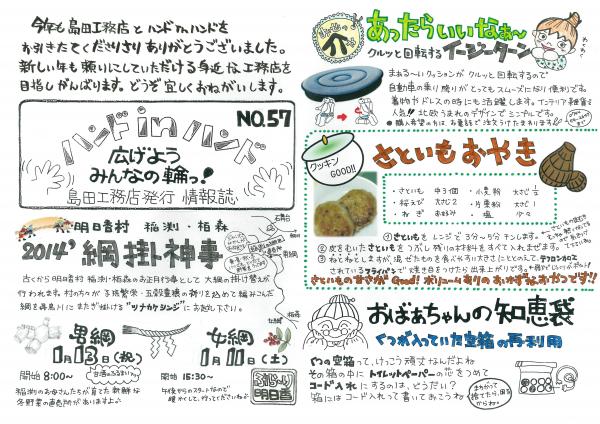 今年も島田工務店とハンドinハンドを
お引きたてくださりありがとうございました。
新しい年も頼りにしていただける身近な工務店を
目指しがんばります。どうぞ宜しくおねがいします。
NO.57
ハンドinハンド
広げよう
みんなの輪っ!
島田工務店発行 情報誌
明日香村 稲渕・栢森
2014'綱掛神事
古くから明日香村 稲渕・栢森のお正月行事として大綱の掛け替えが
行われます。村の方々が子孫繁栄・五穀豊穣の祈りを込めて編みこんだ
綱を飛鳥川にまたぎ掛ける
男綱
1月13日(祝)
開始 8:00〜
稲渕のお母さんたちが育てた新鮮な
冬野菜の直売所がありますよ♪
女綱
1月11日(土)
開始 15:30〜
午後からのスタートなので
暖かくして、行ってくださいね♪
ぶら〜り
明日香
あったらいいなぁ〜
クルッと回転するイージーターン
まぁるいクッションがクルッと回転するので
自動車の乗り降りがとってもスムーズになり便利です。
着物やドレスの時にも活躍します。インテリア雑貨で
人気!! 北欧うまれのデザインでシンプルです。
クッキン
GOOD!!
さといもおやき
・さといも 中3個
・桜えび 大さじ2
・ねぎ お好み
・小麦粉 大さじ1/2
・片栗粉 大さじ1
・塩 少々
①さといもをレンジで3分〜5分チンします。
②皮をむいたさといもをつぶし残りの材料をすべて入れてまぜます。
③ねとねとしますが、混ぜたものを食べやすい大きさにととのえて、テフロン加工
されているフライパンで焼き目をつけたら出来上がりです。
さといもの甘さがGood! ボリュームありのおかずおやつです!!
おばあちゃんの知恵袋
くつが入っていた空箱の再利用
くつの空箱って、けっこう頑丈なんだよね
その箱の中にトイレットペーパーの芯をつめて
コード入れにするのは、どうだい?
箱にはコード入れって書いておこうね
まちがって
捨てたら、困る
からね。